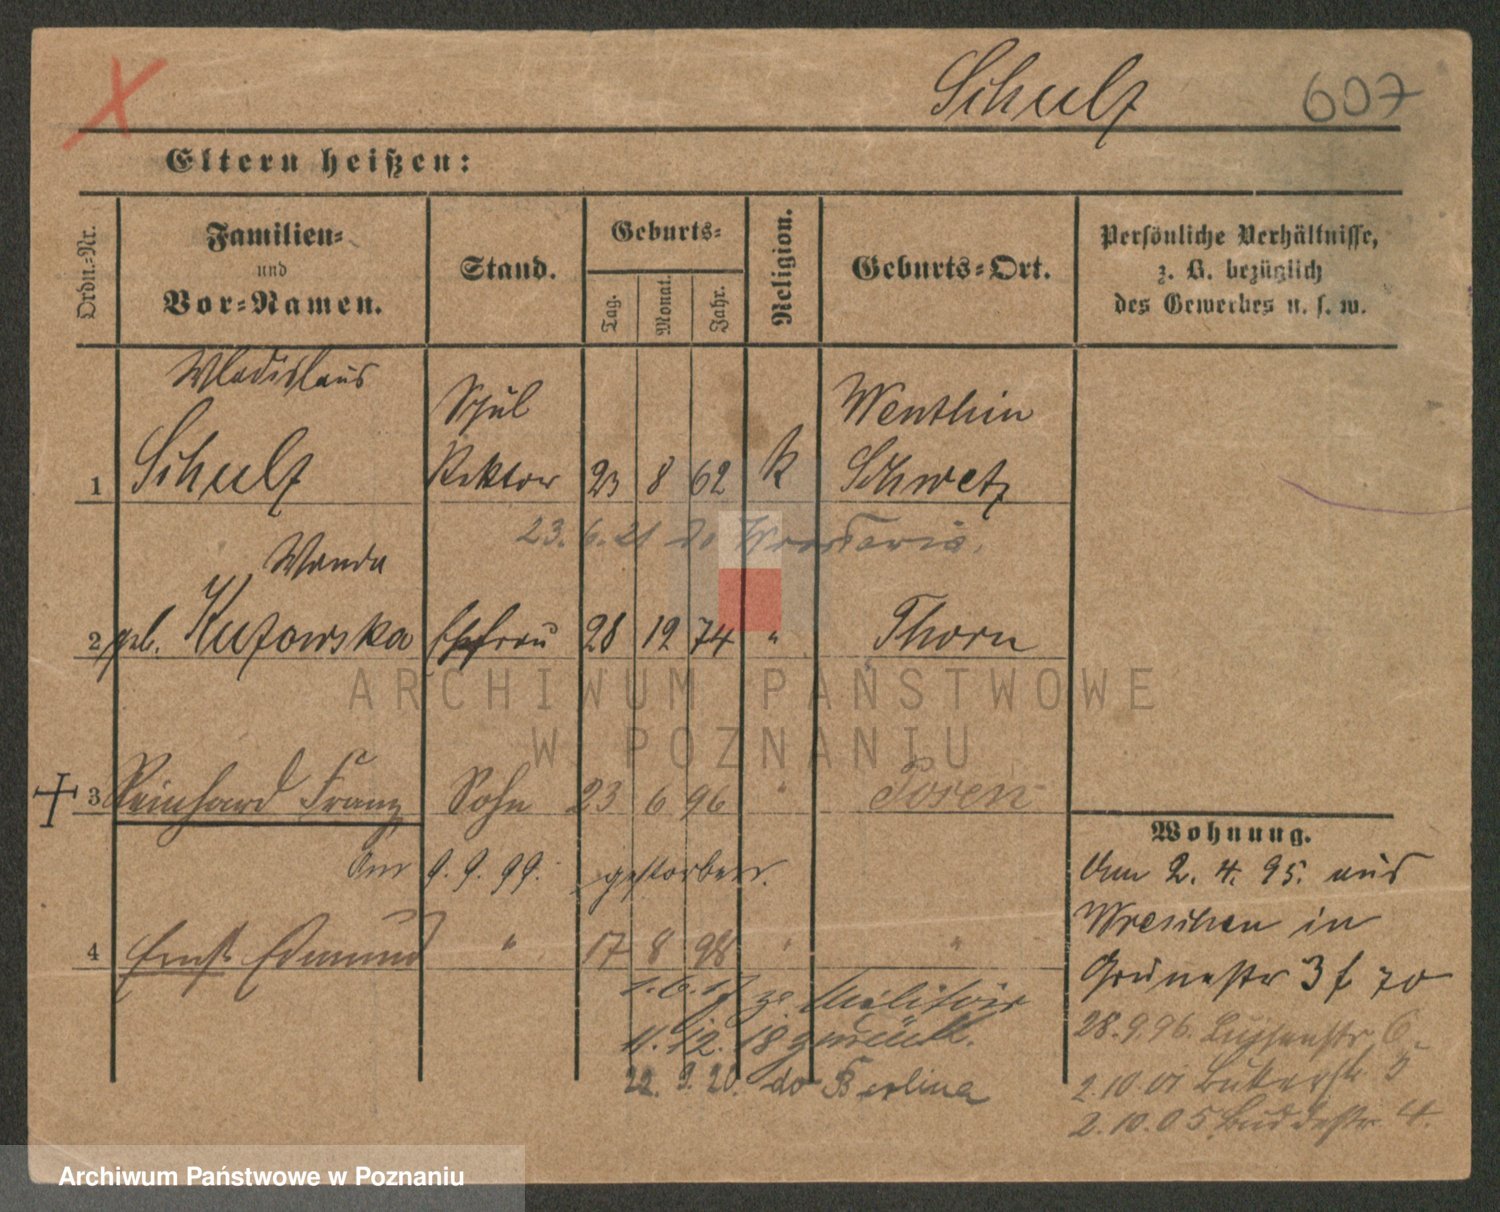 Schulz 607
Eltern heißen:
Ordn.-Nr. Familien- und Vor-Namen. Stand. Geburts- Tag. Monat. Jahr. Religion. Geburts-Ort. Persönliche Verhältnisse, z. B. bezüglich des Gewerbes u. s. w.
Wladislaus Schul Wenthin
1 Schulz Rektor 23 8 62 k Schwetz
23. 6. 21 do
Wanda
2 geb. Kuzowska Ehefrau 28 12 74 " Thorn
3 Reinhard Franz Sohn 23 6 96 " Posen
am 9. 9. 99. gestorben.
4 Ernst Edmund " 17 8 98 " "
1. 6. 17 z. Militär
11. 12. 18 zurück.
22. 9. 20. do Berlina
Wohnung.
Am 2. 4. 95. aus
Wreschen in
Grünestr 3 f 70
28. 9. 96. Luisenstr 6
2. 10. 01 Bukerstr 5
2. 10. 05 Buddestr. 4.
ARCHIWUM PAŃSTWOWE
W POZNANIU
Archiwum Państwowe w Poznaniu